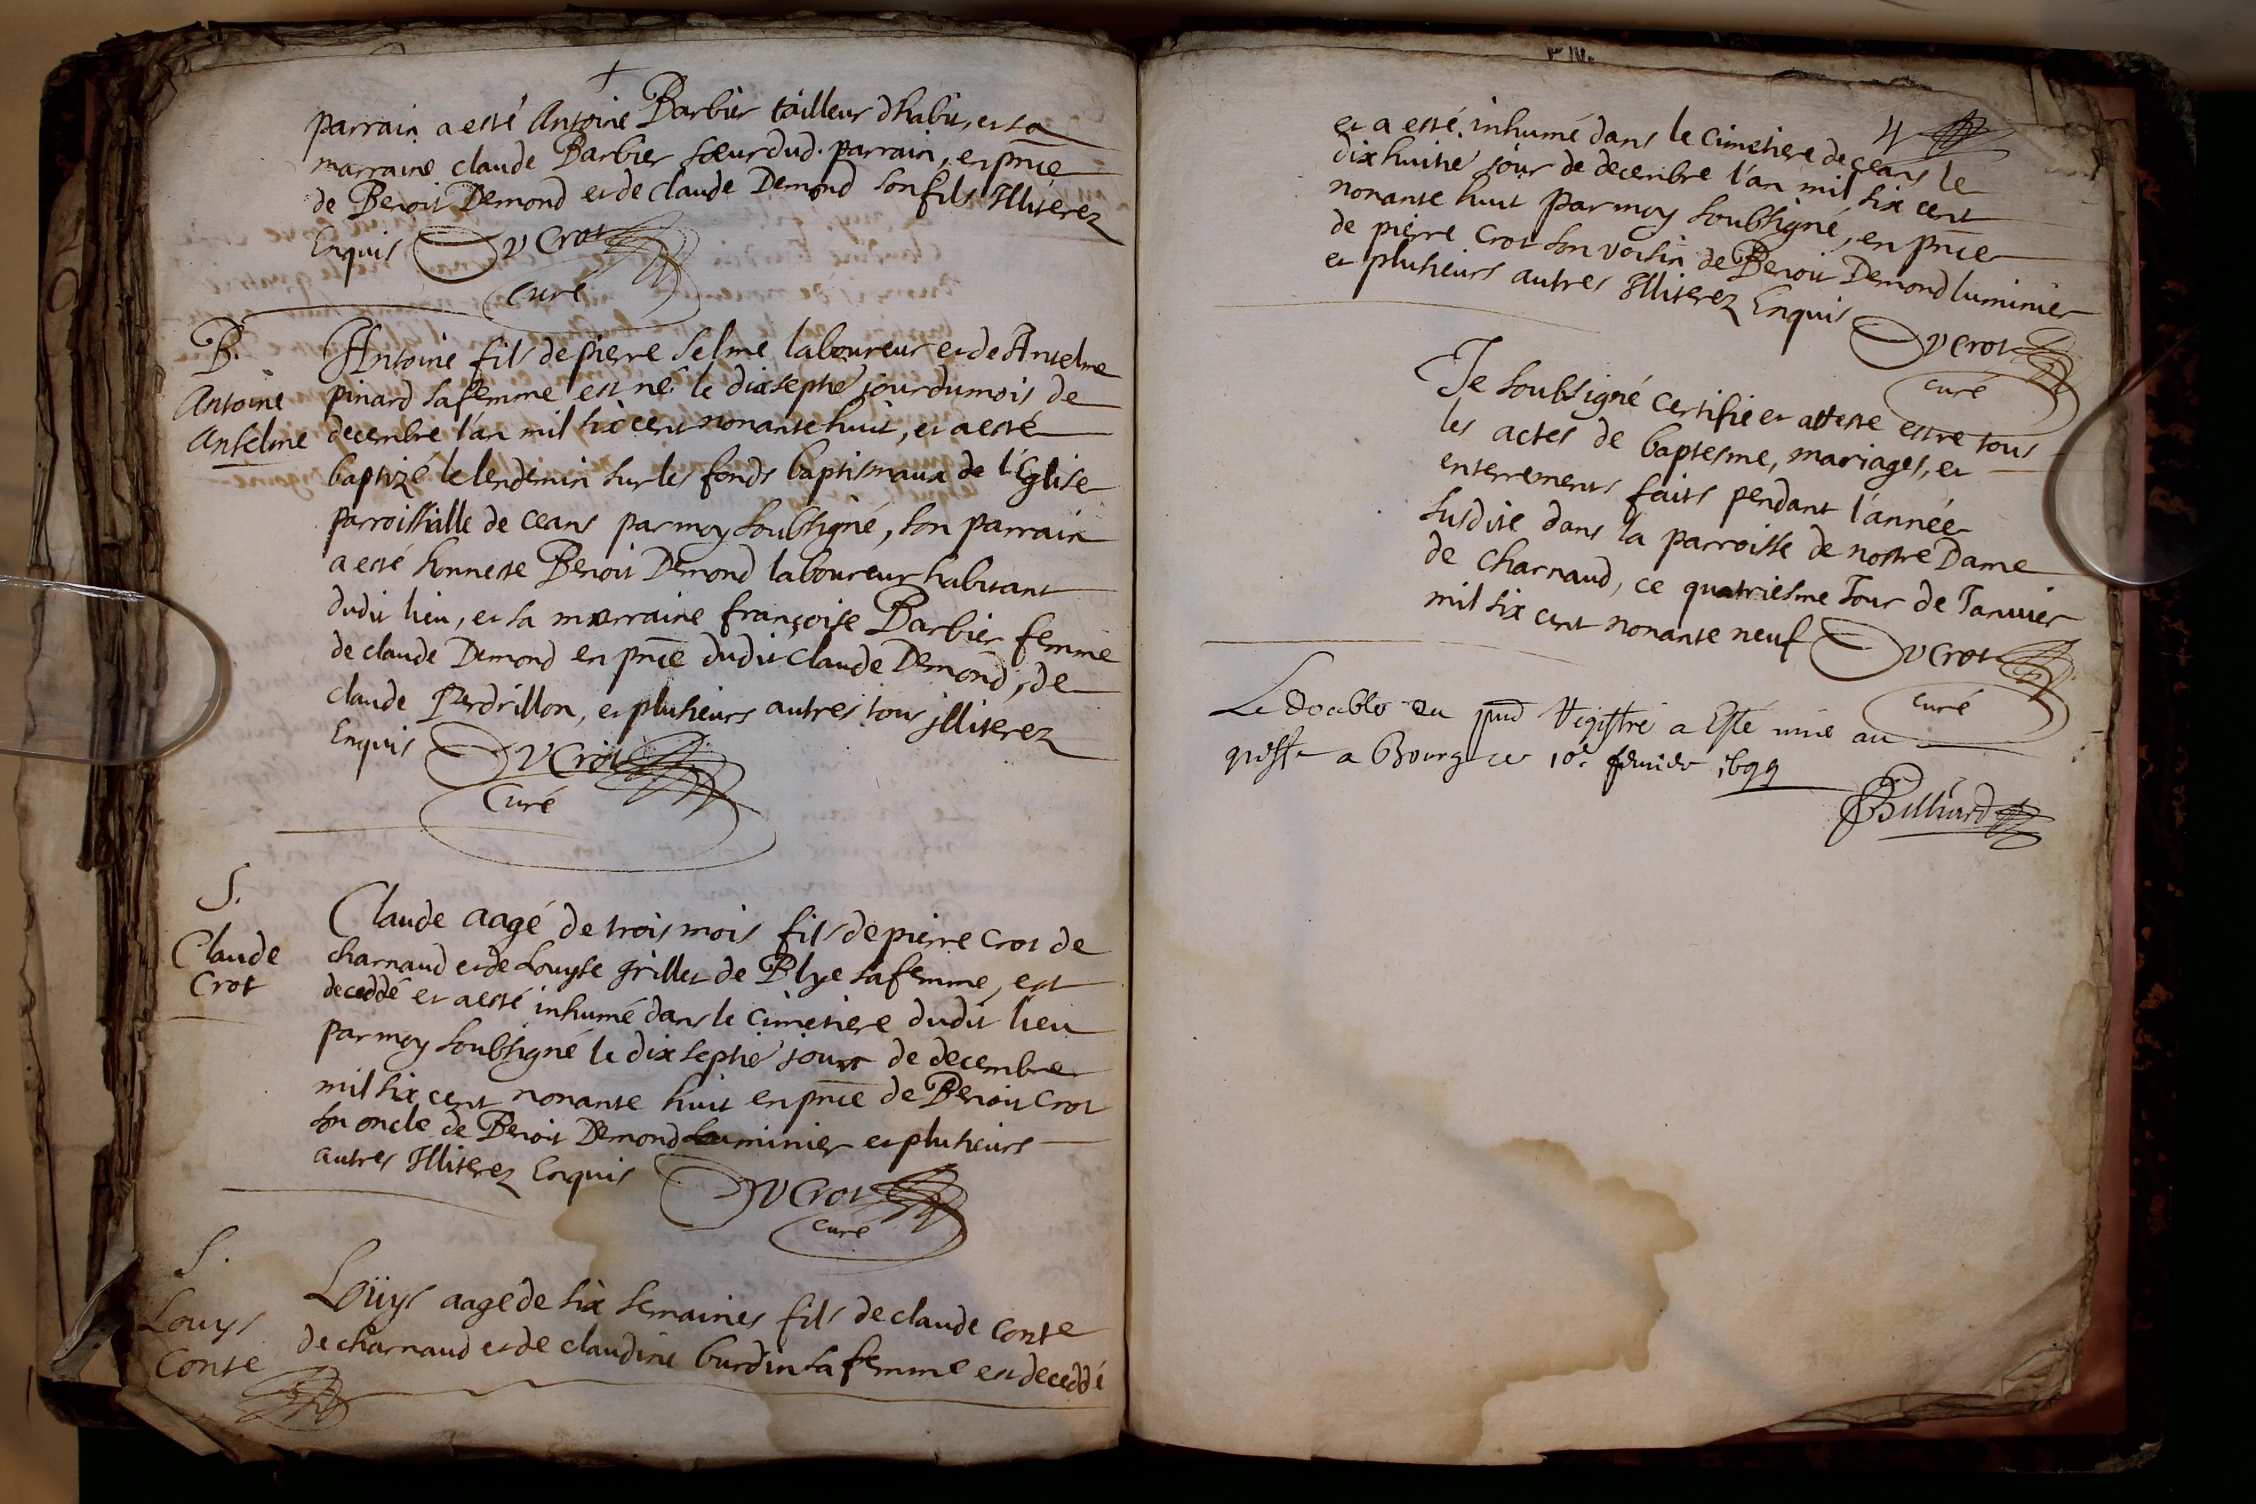 parrain a esté Antoine Barbier tailleur d'habit, et sa
marraine claude Barbier sœur dud. parrain, en pnce
de Benoit Demond et de claude Demond son fils Illiterez
Enquis DuCrot
curé
B.
Antoine
Anselme
Antoine fils de piere Selme laboureur et de Antelme
pinard sa femme est né le dixseptie jour du mois de
decembre l'an mil six cent nonante huit, et a esté
baptizé le lendemin sur les fonds baptismaux de l'Eglise
parroissialle de ceans par moy soubsigné, son parrain
a esté honneste Benoit Demond laboureur habitant
dudit lieu, et sa marraine françoise Barbier femme
de claude Demond en pnce dudit claude Demond, de
claude Perdrillon, et plusieurs autres tous jlliterez
Enquis DuCrot
Curé
S.
Claude
Crot
Claude aagé de trois mois fils de pierre Crot de
charnaud et de Louyse grillet de Blye sa femme, est
deceddé et a esté inhumé dans le cimetiere dudit lieu
par moy soubsigné le dixseptie jour de decembre
mil six cent nonante huit en pnce de Benoit Crot
son oncle de Benoit Demond luminier et plusieurs
autres Illiterez Enquis DuCrot
curé
S.
Louys
Conte
Loüys aagé de six semaines fils de claude Conte
de charnaud et de claudine burdin sa femme est deceddé
4
et a esté inhumé dans le cimetiere de ceans le
dixhuitie jour de decembre l'an mil six cent
nonante huit par moy soubsigné, en pnce
de pierre Crot son voisin de Benoit Demond luminier
et plusieurs autres Illiterez Enquis DuCrot
curé
Je soubsigné certifie et atteste estre tous
les actes de baptesme, mariages, et
enterrements faits pendant l'année
susdite dans la parroisse de nostre Dame
de charnaud, ce quatriesme Jour de Janvier
mil six cent nonante neuf DuCrot
curé
Le double du pnt Registre a Esté mis au
greffe a Bourg ce 10e febvrier 1699
Billiard